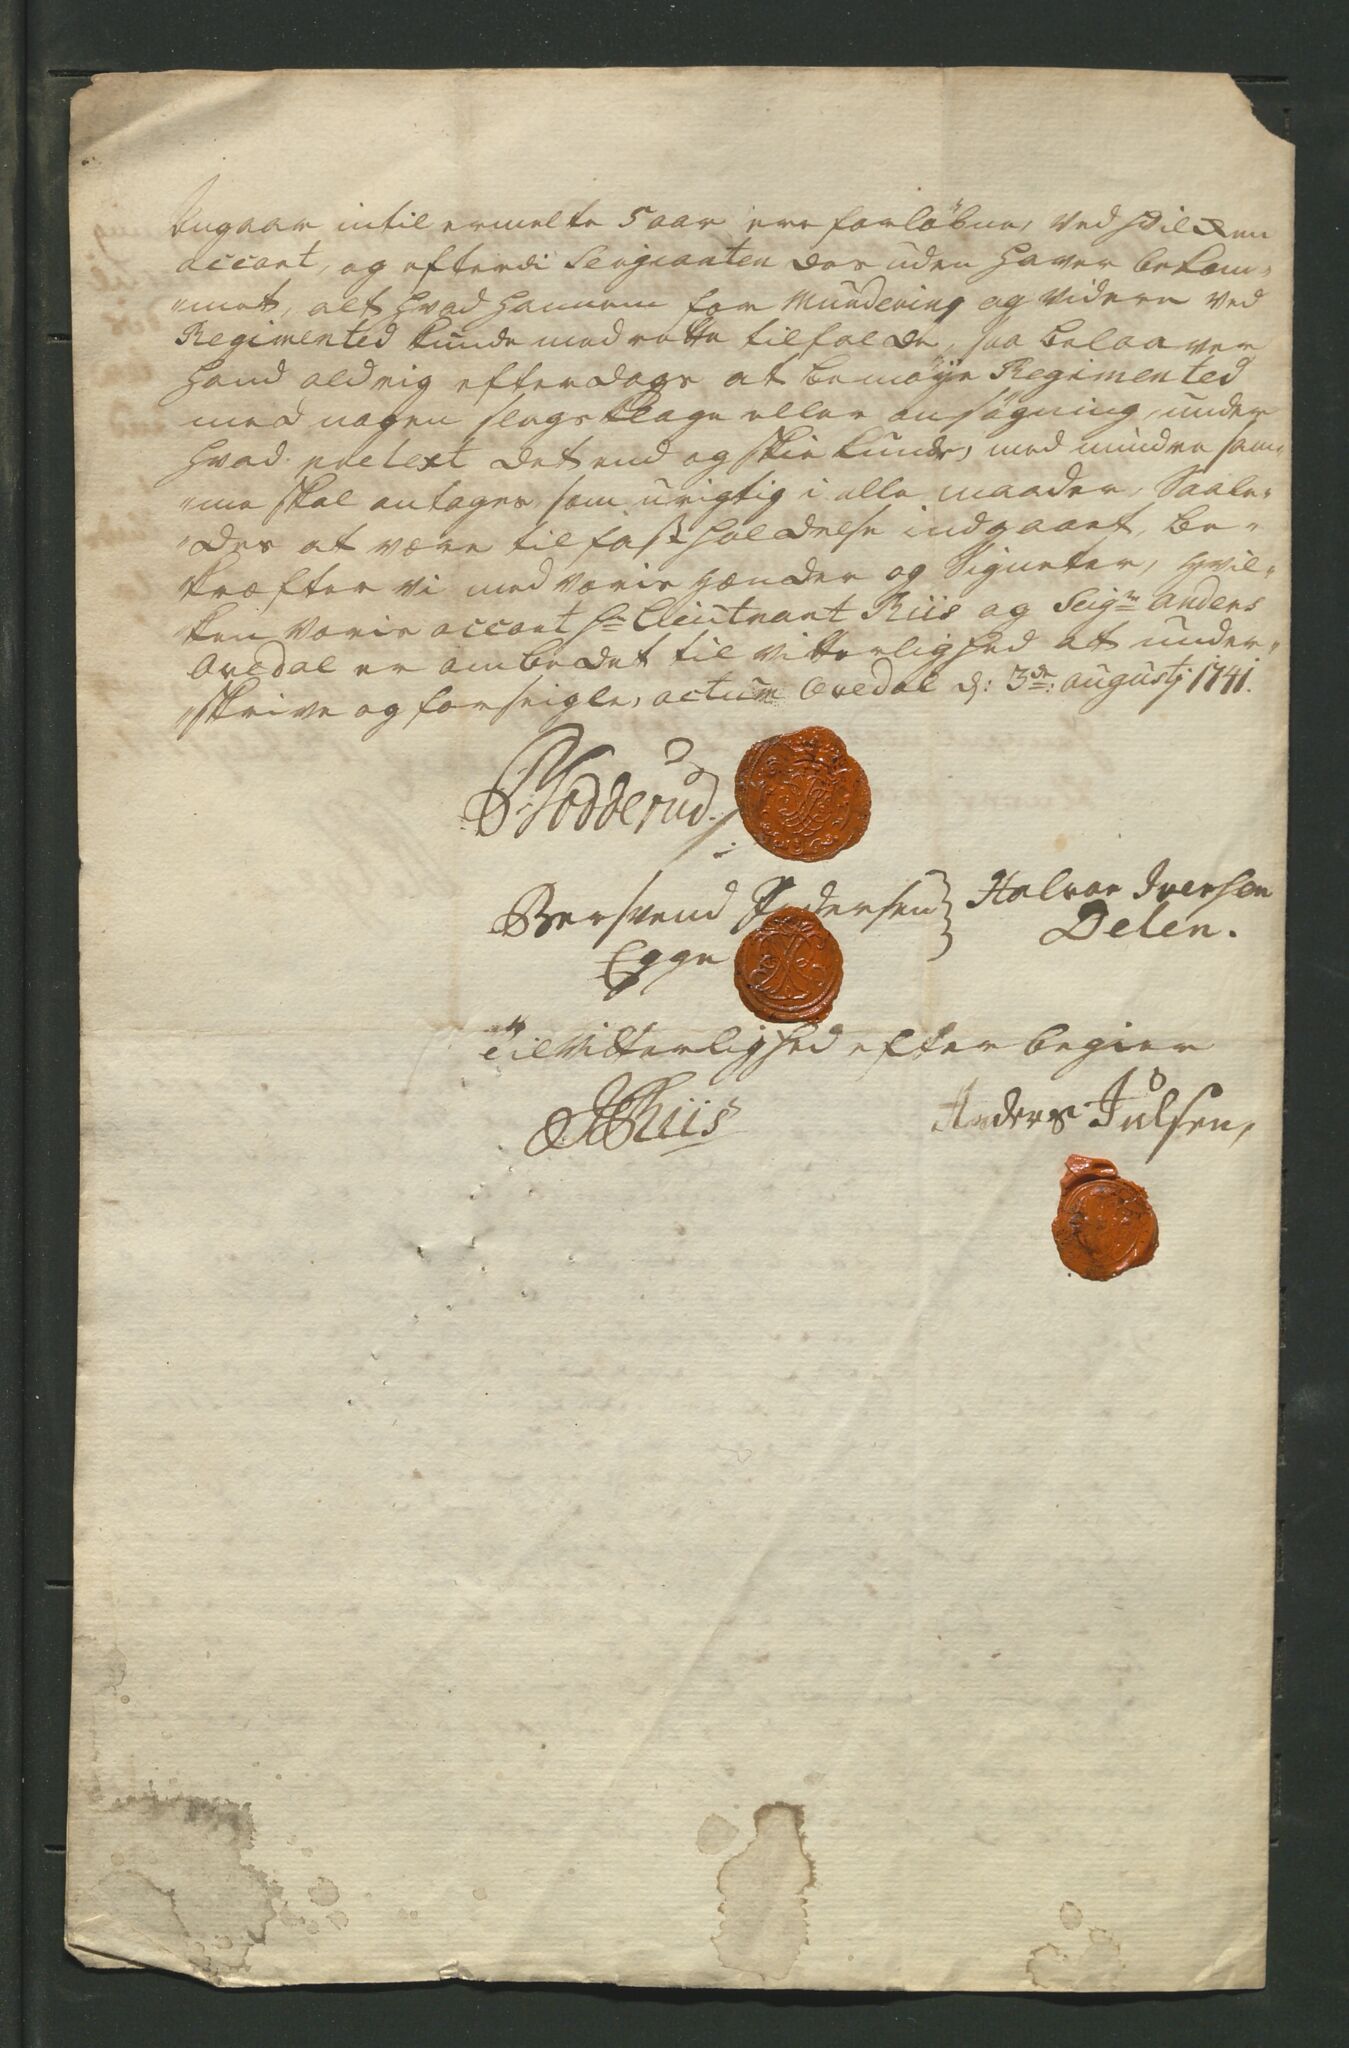 angaar intil ermelte 5 aar ere forløbne, ved hvilken
accort, og efterdi Sergianten des uden haver bekom-
met, alt hvad hannem for Mundering og videre ved
Regimented kunde med rette tilfalde, saa belaaver
hand aldrig efterdags at bemøÿe Regimented
med nogen slags Klage eller ansøgning, under
hvad pretext det end og skie kunde, med mindre sam-
"me skal antages som urigtig i alle maader, Saale-
"des at være til fast holdelse indgaaet, be-
kræfter vi med voris hænder og Signeter, hvil-
"ken voris accort Hr Lieutnant Riis og Seigr Anders
Ovedal er ombedet til vitterlighed at under-
"skrive og forseigle, actum Ovedal d: 3de: augustj 1741.
Hodderud.
Bersvend Pedersen
Egge
Halvor Iversen
Delen.
Til Vitterlighed efter begier
Riis
Anders Julsen,